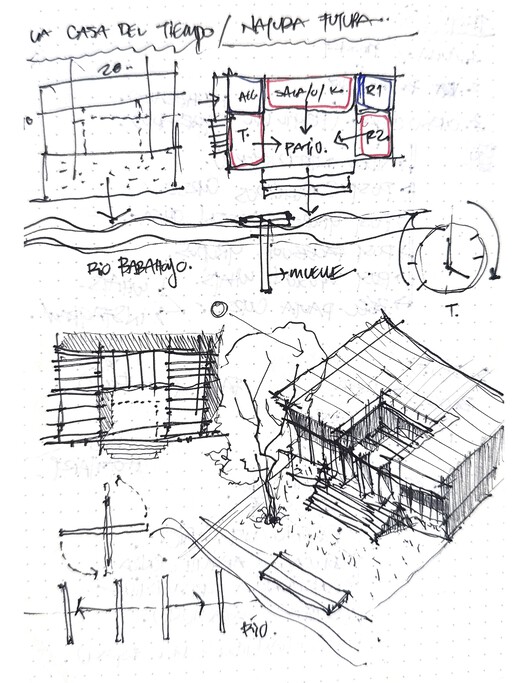 LA CASA DEL TIEMPO / NATURA FUTURA..
20.
SALA/C/K.
R1
T.
PATIO.
R2
RIO BABAHOYO.
MUELLE
T.
RÍO.